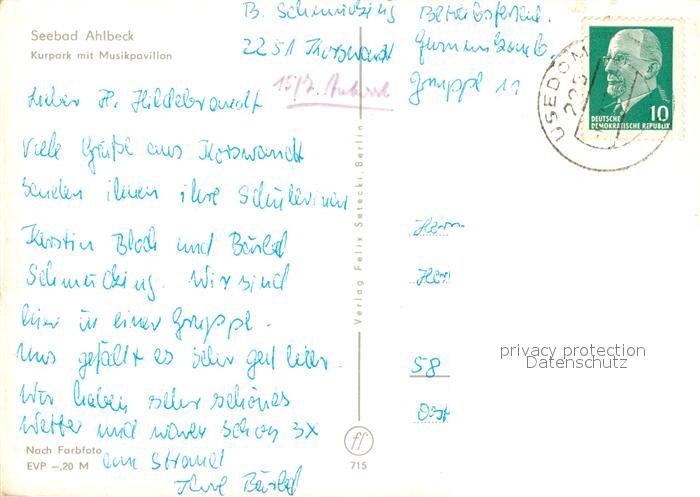 Seebad Ahlbeck
Kurpark mit Musikpavillon
B. Schmudzing
2251 Korswandt
Gruppe 11
Lieber H. Hildebrandt
Viele Grüße aus Korswandt
senden ihnen ihre Schülerinen
Kerstin Bloch und Bärbel
Schmudzing. Wir sind
hier in einer Gruppe.
Uns gefällt es sehr gut hier.
Wir haben sehr schönes
Wetter und waren schon 3x
am Strand
Ihre Bärbel
Nach Farbfoto
EVP –,20 M
Verlag Felix Setecki, Berlin
715
USEDOM
DEUTSCHE
DEMOKRATISCHE REPUBLIK
10
Herrn
Her
58
privacy protection
Datenschutz